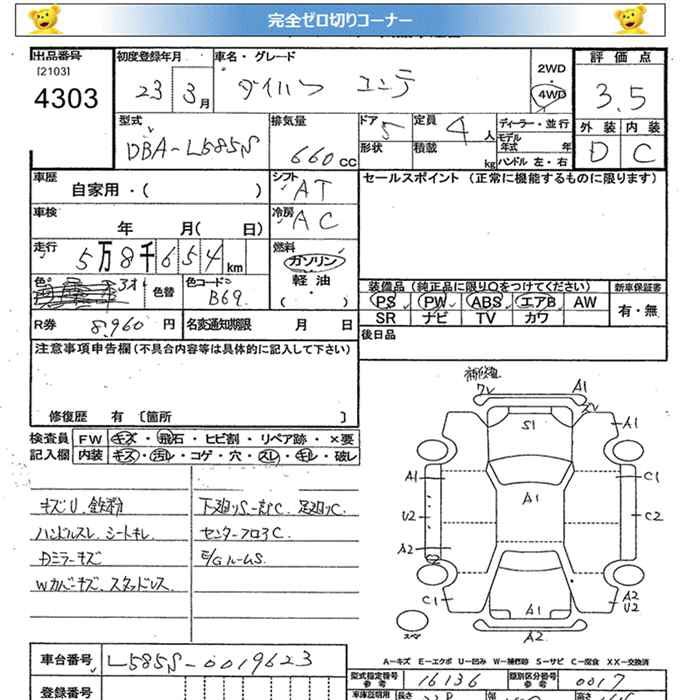 完全ゼロ切りコーナー
出品番号 初度登録年月 車名・グレード 2WD 評価点
[2103] ・
4303 23 3月 ダイハツ エッセ 4WD 3.5
型式 排気量 ドア 5 定員 4人 ディーラー・並行 外装 内装
DBA-L585S 660cc 形状 積載 kg モデル年式 年 D C
ハンドル 左・右
車歴 シフト セールスポイント (正常に機能するものに限ります)
自家用・( ) AT
車検 冷房
年 月( 日) AC
走行 燃料
5万8千654km ガソリン
軽油
色 色替 色コード ・ 装備品 (純正品に限り○をつけてください) 新車保証書
B69 ( ) PS PW ABS エアB AW 有・無
SR ナビ TV カワ
R券 8,960円 名変通知期限 月 日 後日品
注意事項申告欄(不具合内容等は具体的に記入して下さい)
修復歴 有 [箇所 ]
検査員 FW キズ・飛石・ヒビ割・リペア跡・×要
記入欄 内装 キズ・汚レ・コゲ・穴・スレ・キレ・破レ
キズU 鉄粉 下廻りS〜むC. 足廻りC.
ハンドルスレ. シートキレ. センターフロアC
Dミラーキズ E/GルームS.
Wカバーキズ. スタッドレス.
A1
S1 A1
A1 A1 C1
U2 C2
A2
C1 A1 A2
U2
スペア A2
A-キズ E-エクボ U-凹み W-補修跡 S-サビ C-腐食 XX-交換済
車台番号 L585S-0019623
型式指定番号 参考 16136 類別区分番号 参考 0017
登録番号 車庫証明用 長さ